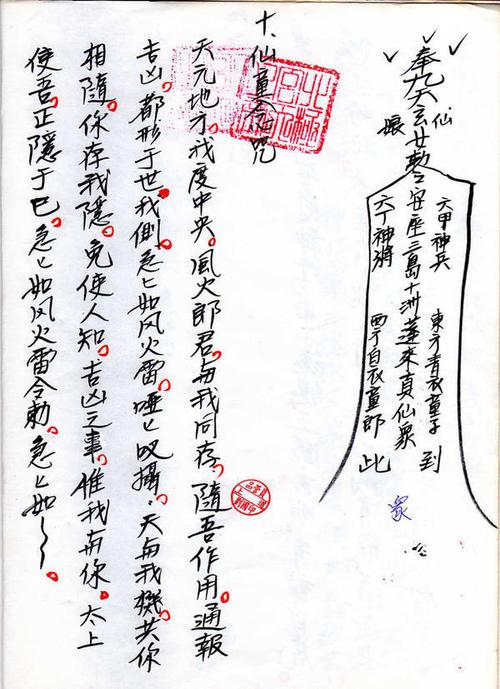 仙
娘
奉九天玄女勅令安座三島十洲蓬來真仙眾
六甲神兵
六丁神將
東方青衣童子到
西方白衣童郎此
眾
十、仙童念咒
天元地方。我度中央。風火郎君。与我同存。隨吾作用。通報
吉凶。都形于世。我側。急々如风火雷。哑々叹攝。天与我機。共你
相隨。你存我隱。免使人知。吉凶之事。惟我有你。太上
使吾。正隱于已。急々如风火雷令勅。急々如～～。